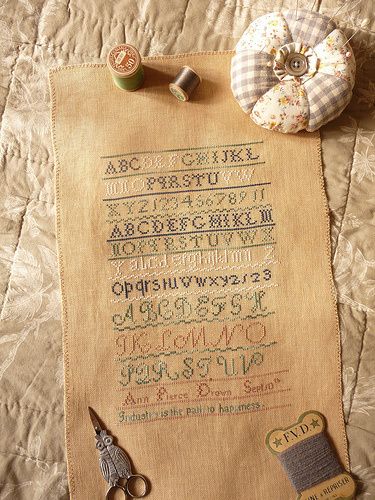 50
ABCDEFGHIJKL
MNOPQRSTUVW
XYZ1234567891
ABCDEFGHIKLM
NOPQRSTUVWX
Yabcdefghiklmn
opqrstuvwxyz123
ABCDEFGH
IKLMNO
PQRSTUV
Ann Pierce Drown Sept
Industry is the path to happiness.
F.V.D.
REPRISER